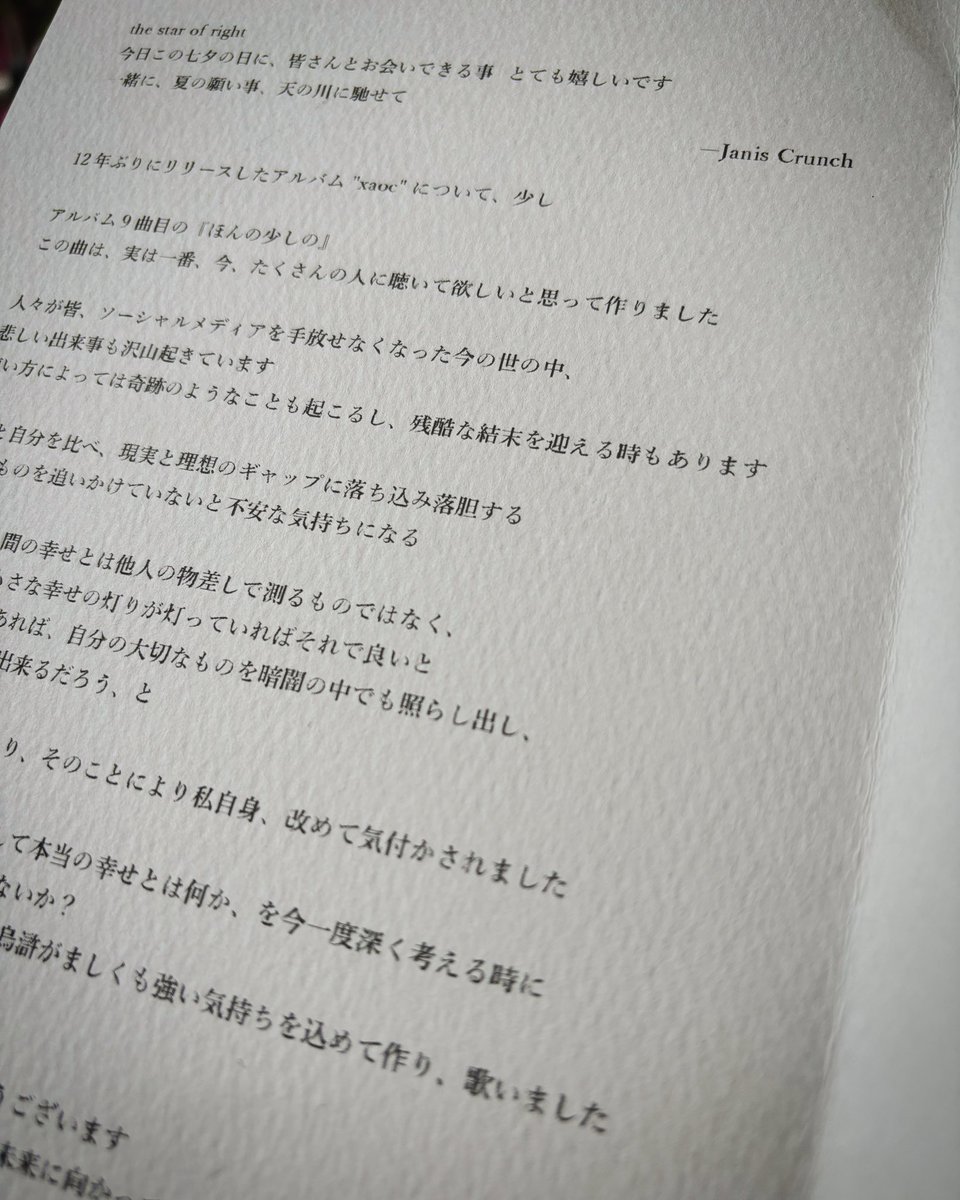 the star of right
今日この七夕の日に、皆さんとお会いできる事 とても嬉しいです
一緒に、夏の願い事、天の川に馳せて
—Janis Crunch
12年ぶりにリリースしたアルバム "xaoc" について、少し
アルバム9曲目の『ほんの少しの』
この曲は、実は一番、今、たくさんの人に聴いて欲しいと思って作りました
人々が皆、ソーシャルメディアを手放せなくなった今の世の中、
悲しい出来事も沢山起きています
い方によっては奇跡のようなことも起こるし、残酷な結末を迎える時もあります
と自分を比べ、現実と理想のギャップに落ち込み落胆する
ものを追いかけていないと不安な気持ちになる
間の幸せとは他人の物差しで測るものではなく、
さな幸せの灯りが灯っていればそれで良いと
あれば、自分の大切なものを暗闇の中でも照らし出し、
出来るだろう、と
り、そのことにより私自身、改めて気付かされました
して本当の幸せとは何か、を今一度深く考える時に
ないか？
烏滸がましくも強い気持ちを込めて作り、歌いました
うございます
未来に向かっ